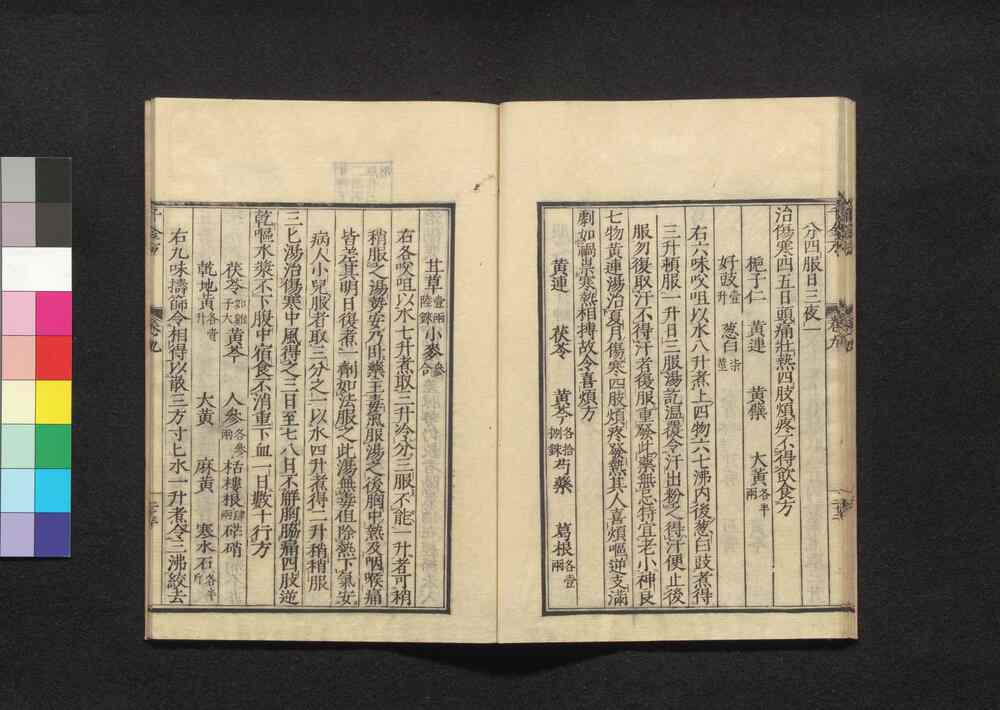 分四服日三夜一
治傷寒四五日頭痛壯熱四肢煩疼不得飲食方
梔子仁 黃連 黃蘗 大黃各半兩
好豉壹升 葱白柒莖
右六味㕮咀以水八升煮上四物六七沸內後葱白豉煮得
三升頓服一升日三服湯訖溫覆令汗出粉之得汗便止後
服勿復取汗不得汗者復服重發此藥無忌特宜老小神良
七物黃連湯治夏月傷寒四肢煩疼發熱其人喜煩嘔逆支滿
劇如禍祟寒熱相搏故令喜煩方
黃連 茯苓 黃芩各拾捌銖 芍藥 葛根各壹兩
甘草壹兩陸銖 小麥參合
右各㕮咀以水七升煮取三升冷分三服不能一升者可稍
稍服之湯勢安乃卧藥主毒氣服湯之後胸中熱及咽喉痛
皆差其明日復煮一劑如法服之此湯無毒但除熱下氣安
病人小兒服者取三分之一以水四升煮得二升稍稍服
三匕湯治傷寒中風得之三日至七八日不解胸脇痛四肢逆
乾嘔水漿不下腹中宿食不消重下血一日數十行方
茯苓如雞子大 黃芩 人參各參兩 栝樓根肆兩 硭硝
乾地黃各壹升 大黃 麻黃 寒水石各半斤
右九味擣篩令相得以散三方寸匕水一升煮令三沸絞去
卷九